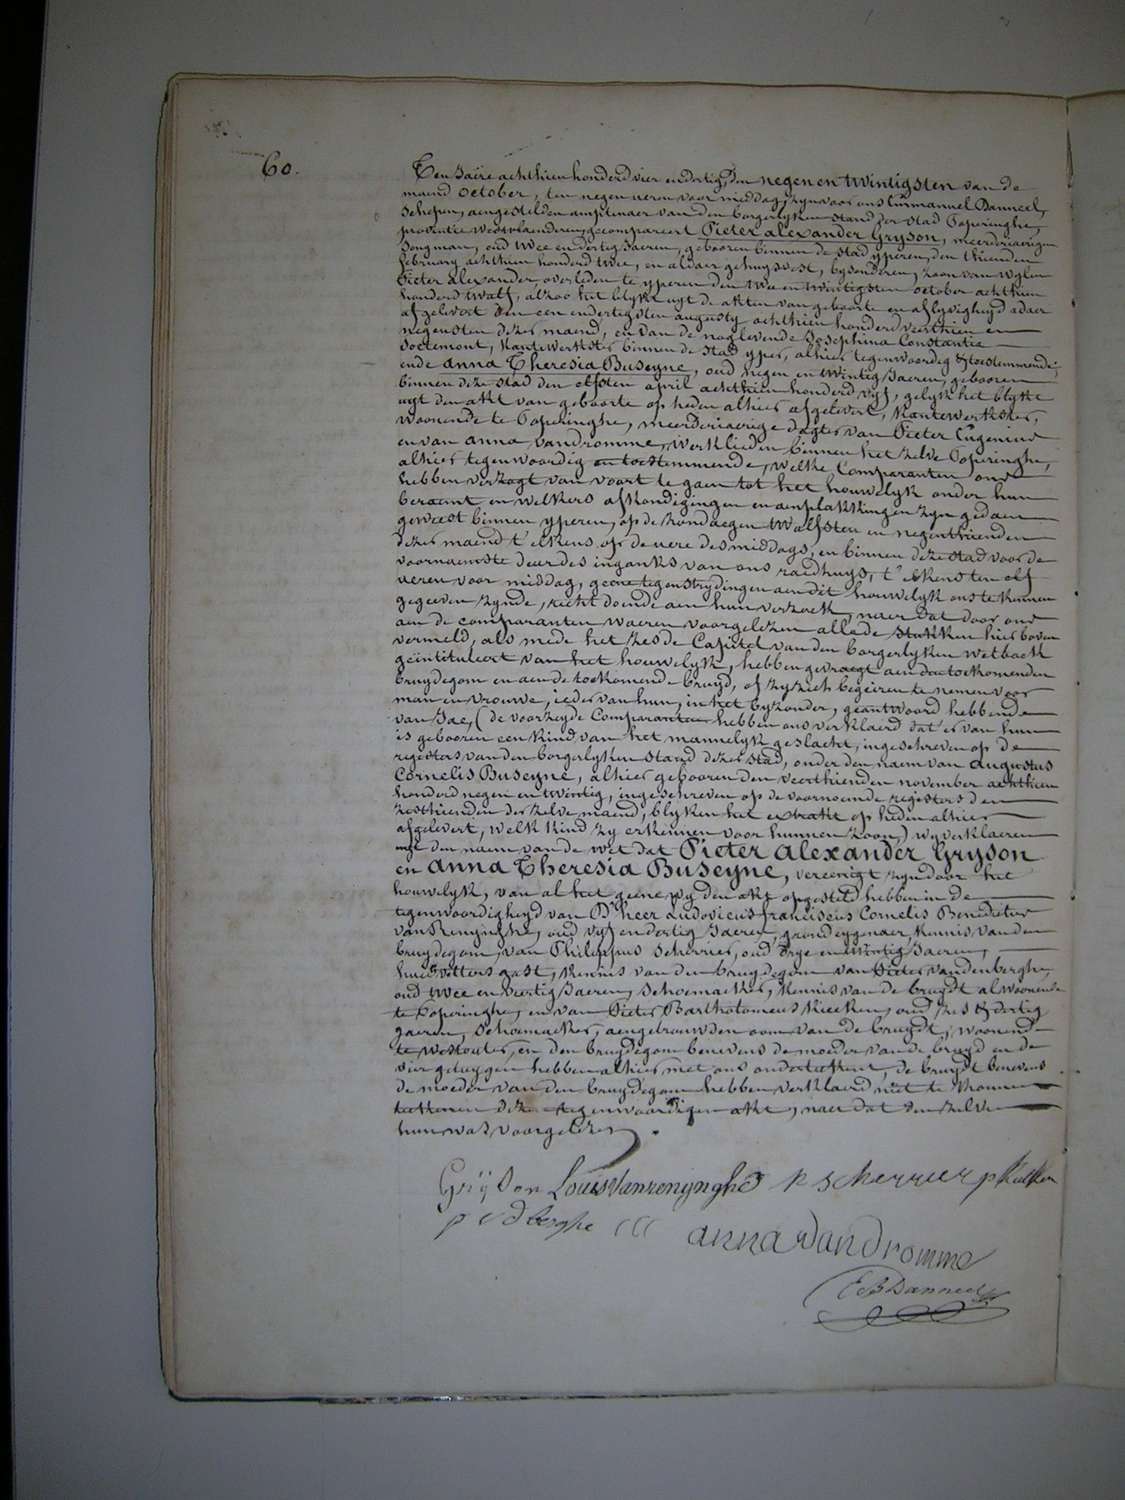 60.
Ten Jaere achthien honderd vier en dertig, den negen en twintigsten van de
maend october, ten negen ueren voor middag, zyn voor ons Emmanuel Danneel,
Schepen, aengestelden amptenaer van den borgerlyken stand der stad Poperinghe,
provintie Westvlaenderen, gecompareert Pieter Alexander Gryson, meerderjarigen
Jongman, oud twee en dertig Jaeren, gebooren binnen de stad yperen, den thienden
february achthien honderd twee, en aldaer gehuysvest, bysonderen, zoon van wylen
Pieter Alexander, overleden te yperen den twee en twintigsten october achthien
honderd twalf, alzoo het blykt uyt de akten van geboorte en aflyvigheyd aldaer
afgelevert den een en dertigsten augusty achthien honderd veerthien en
negensten dezer maend, en van de naglevende Josephina Constantie
Soetemont, kantewerkster binnen de stad yper, alhier tegenwoordig & toestemmende;
ende Anna Theresia Buseyne, oud negen en twintig Jaeren, gebooren
binnen deze stad den elfsten april achthien honderd vyf, gelyk het blykt
uyt den akt van geboorte op heden alhier afgelevert, kantewerkster,
woonende te Poperinghe, meerderjaerige dogter van Pieter Eugenius
en van Anna Vandromme, werklieden binnen het zelve Poperinghe,
alhier tegenwoordig en toestemmende, welke Comparanten ons
hebben verzogt van voort te gaen tot het houwelyk onder hun
beraemt en welkers afkondigingen en aenplakkingen zyn gedaen
geweest binnen yperen, op de zondaegen twalfsten en negenthienden
dezer maend t'elkens op de uere des middags, en binnen deze stad voor de
voornaemste deur des inganks van ons raedhuys, t'elkens ten elf
ueren voor middag, geene tegenstrydingen aen dit houwelyk ons te kennen
gegeeven zynde, recht doende aen hun verzoek, naer dat door ons
aen de comparanten waeren voorgelezen alle de stukken hier boven
vermeld, als mede het zesde Capitel van den borgerlyken wetboek
geïntituleert van het houwelyk, hebben gevraegt aen den toekomenden
bruydegom en aen de toekomende bruyd, of zy zich begeiren te nemen voor
man en vrouwe, ieder van hun, in het byzonder, geantwoord hebbende
van Jae, (de voorzeyde Comparanten hebben ons verklaerd dat er van hun
is gebooren een kind van het mannelyk geslacht, ingeschreven op de
registers van den borgerlyken stand dezer stad, onder den naem van Augustus
Cornelis Buseyne, alhier gebooren den veerthienden november achthien
honderd negen en twintig, ingeschreven op de voornoemde registers den
zesthienden der zelve maend, blyken het extrakt op heden alhier
afgelevert, welk kind zy erkennen voor hunnen zoon,) wy verklaeren
in den naem van de wet dat Pieter Alexander Gryson
en Anna Theresia Buseyne, vereenigt zyn door het
houwelyk, van al het geene wy den akt opgesteld hebben in de
tegenwoordigheyd van Dheer Ludovicus franciscus Cornelis Benedictus
van Renynghe, oud vyf en dertig Jaeren, grondeygenaer, kennis van den
bruydegom, van Philippus Scherrier, oud drye en veertig Jaeren,
huisvittens gast, kennis van den bruydegom van Pieter Vandenberghe,
oud twee en veertig Jaeren, Schoemaeker, kennis van de bruydt al woonende
te Poperinghe, en van Pieter Bartholomeus Kiecken, oud zes & dertig
jaeren, Schoemaeker, aengetrouwden oom van de bruydt, woonend
te Westouter, en den bruydegom benevens de moeder van de bruyd en de
vier getuygen hebben alhier met ons onderteekent, de bruydt benevens
de moeder van den bruydegom hebben verklaerd niet te konnen
teekenen deze tegenwoordigen akt, naer dat den zelven
hun was voorgelezen.
Grÿson Louis Vanrenynghe P Scherrier p Kiecken
p v d berghe anna Vandromme
E B Danneel